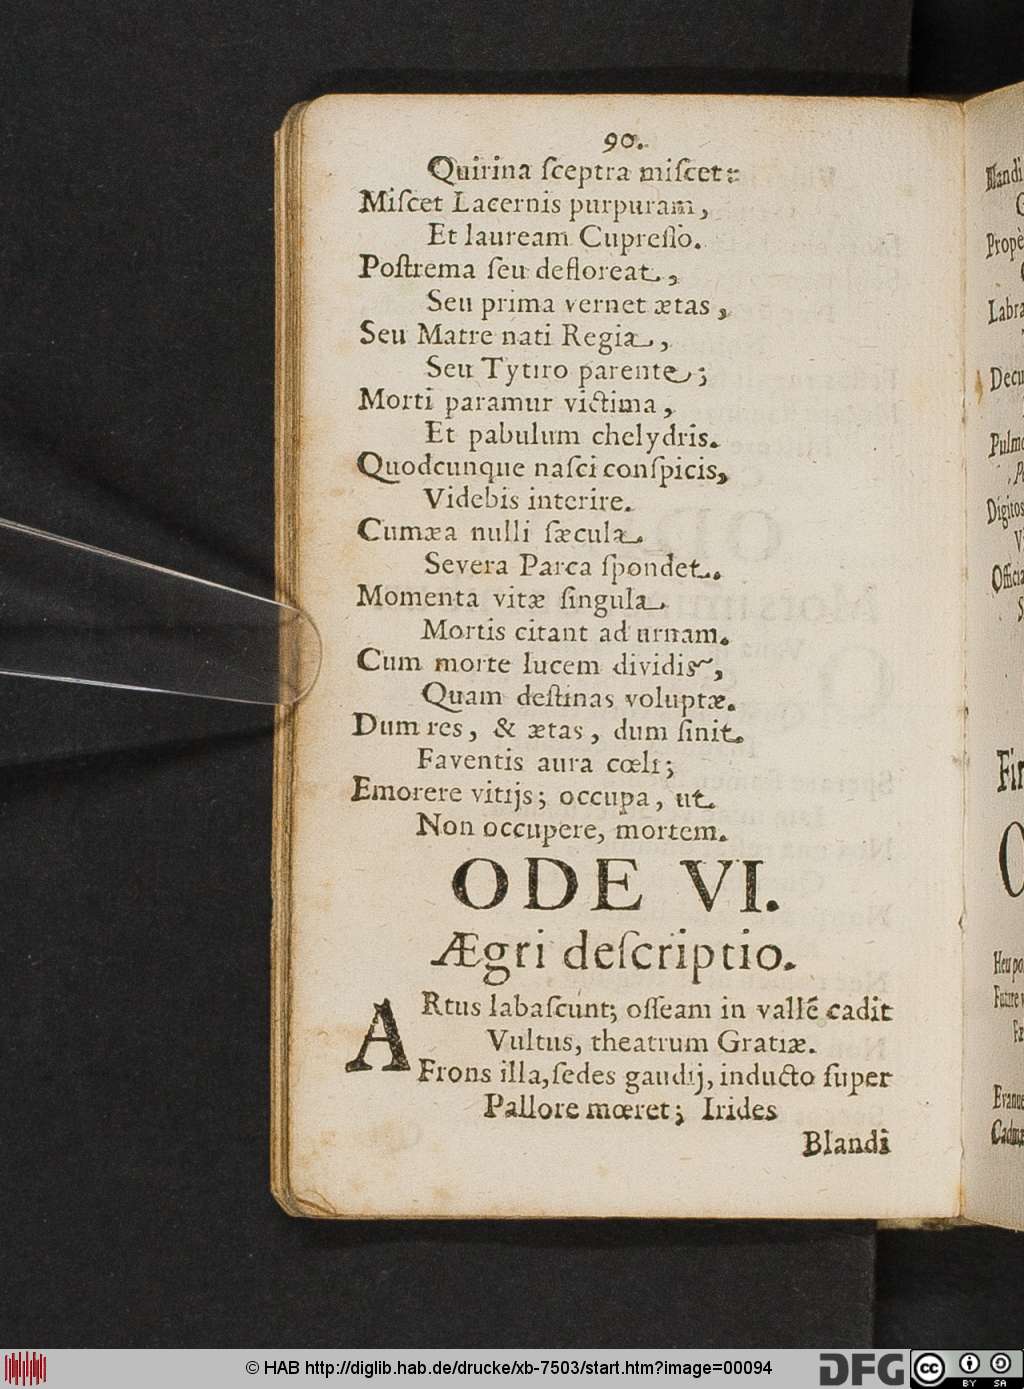 90.
Quirina sceptra miſcet:
Miſcet Lacernis purpuram,
Et lauream Cupreſſo.
Poſtrema ſeu defloreat,
Seu prima vernet ætas,
Seu Matre nati Regia,
Seu Tytiro parente;
Morti paramur victima,
Et pabulum chelydris.
Quodcunque naſci conſpicis,
Videbis interire.
Cumæa nulli ſæcula
Severa Parca ſpondet.
Momenta vitæ ſingula
Mortis citant ad urnam.
Cum morte lucem dividis,
Quam deſtinas voluptæ.
Dum res, & ætas, dum ſinit
Faventis aura cœli;
Emorere vitijs; occupa, ut
Non occupere, mortem.
ODE VI.
Ægri deſcriptio.
ARtus labaſcunt; oſſeam in vallē cadit
Vultus, theatrum Gratiæ.
Frons illa, ſedes gaudij, inducto ſuper
Pallore mœret; Irides
Blandi
Blandi
Propè
Labra
Decu
Pulmo
Digitos
Officia
Fir
Heu po
Evanue
© HAB http://diglib.hab.de/drucke/xb-7503/start.htm?image=00094
DFG
cc
BY SA